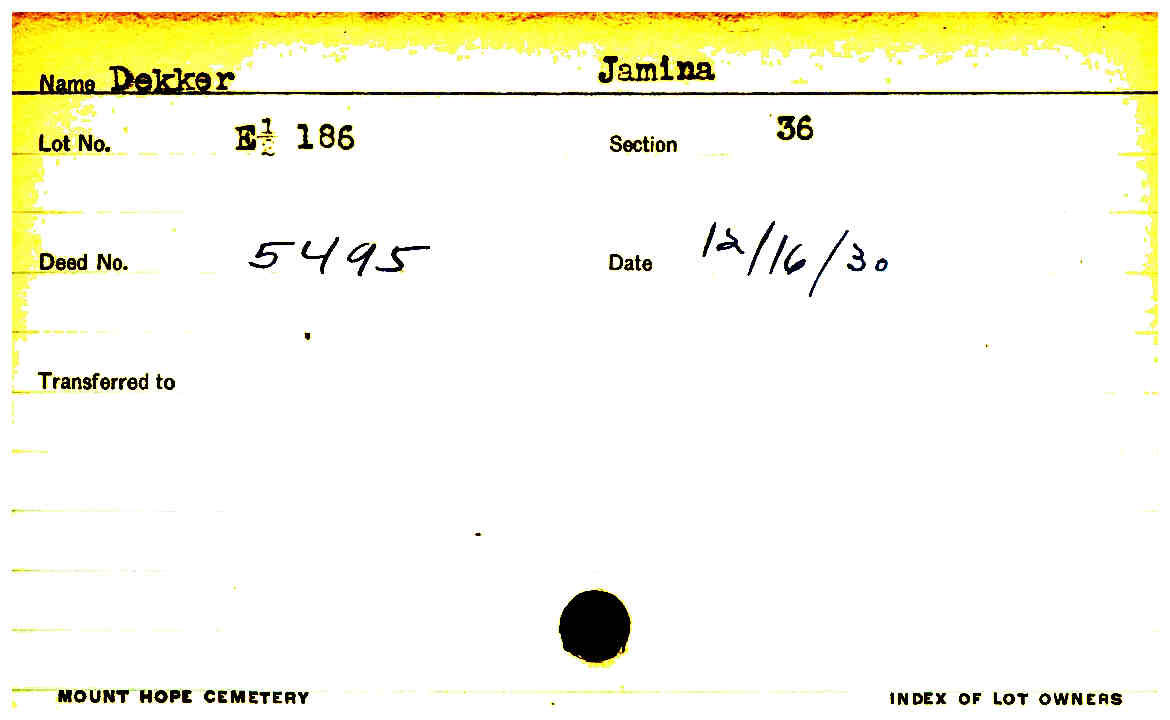 Name Dekker Jamina
Lot No. E½ 186 Section 36
Deed No. 5495 Date 12/16/30
Transferred to
MOUNT HOPE CEMETERY INDEX OF LOT OWNERS